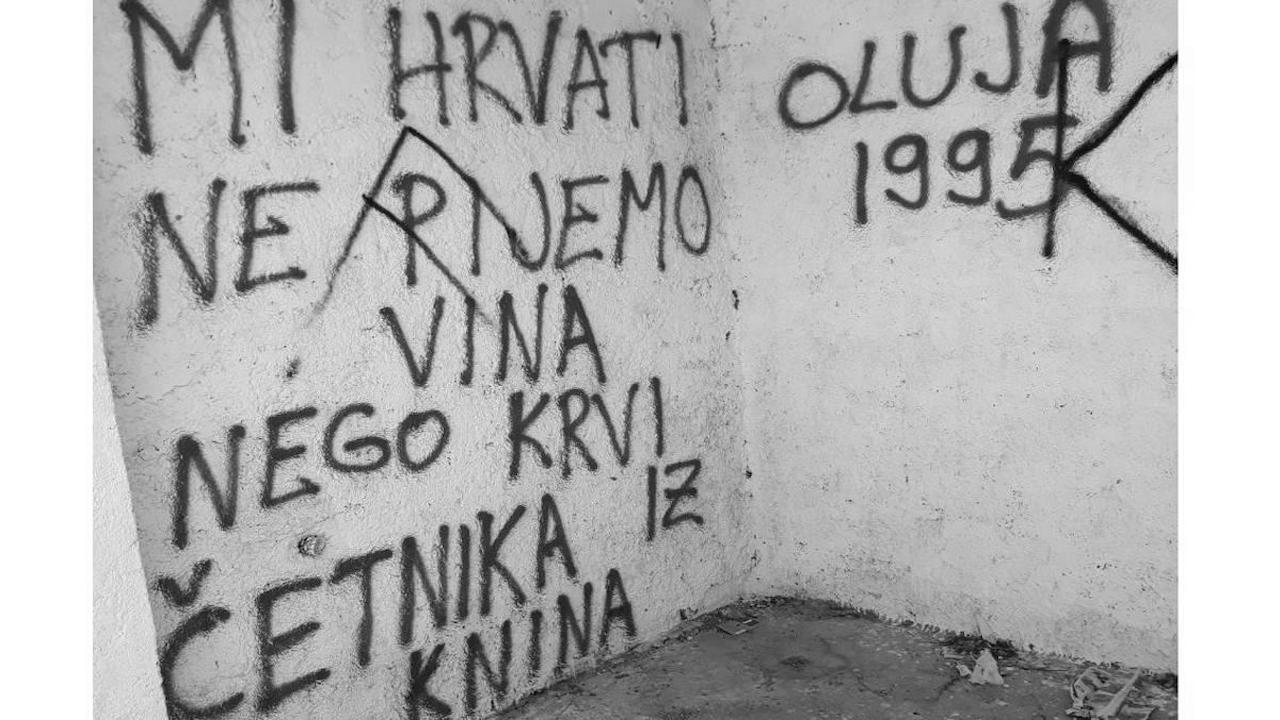 MI HRVATI
NE PIJEMO
VINA
NEGO KRVI
IZ
ČETNIKA
KNINA
OLUJA
1995